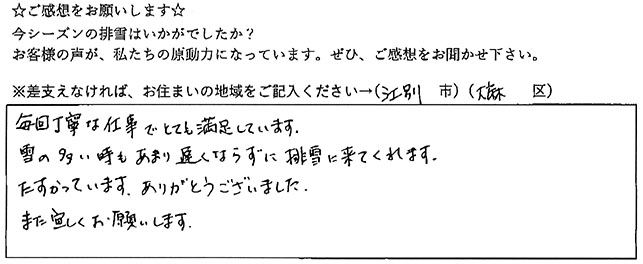 ☆ご感想をお願いします☆
今シーズンの排雪はいかがでしたか？
お客様の声が、私たちの原動力になっています。ぜひ、ご感想をお聞かせ下さい。
※差支えなければ、お住まいの地域をご記入ください→（江別 市）（大麻 区）
毎回丁寧な仕事でとても満足しています.
雪の多い時もあまり遅くならずに排雪に来てくれます.
たすかっています. ありがとうございました.
また宜しくお願いします.